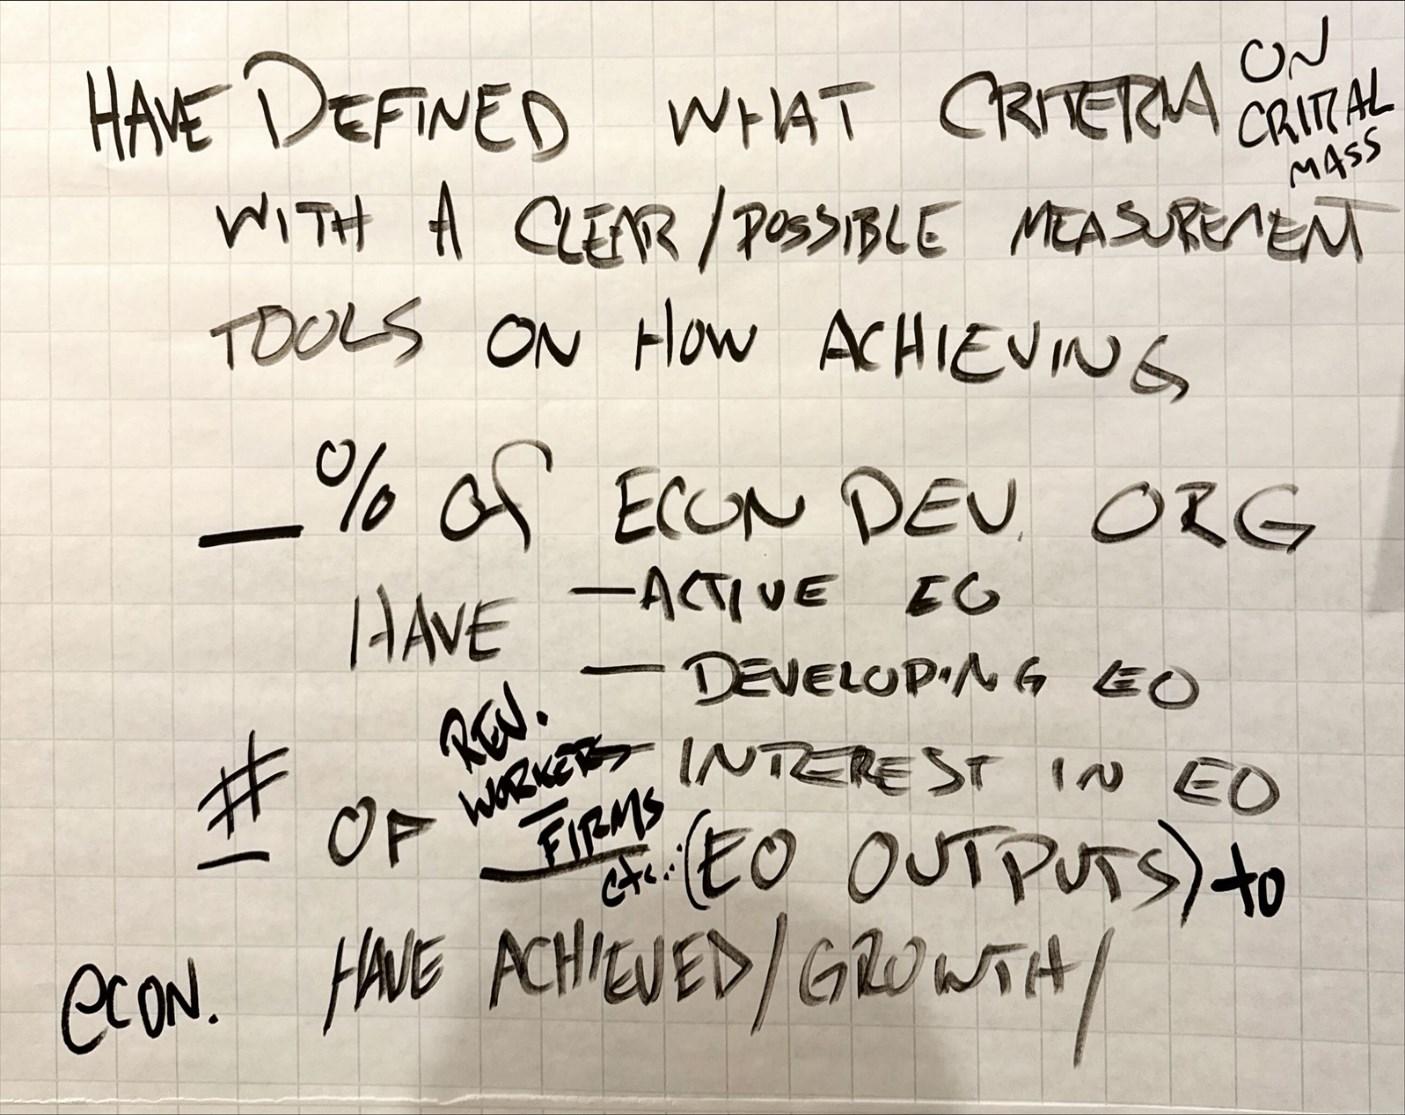 HAVE DEFINED WHAT CRITERIA ON CRITICAL MASS
WITH A CLEAR/POSSIBLE MEASUREMENT
TOOLS ON HOW ACHIEVING
_% of ECON DEV. ORG
HAVE — ACTIVE EO
— DEVELOPING EO
— INTEREST IN EO
# OF REV.
WORKERS
FIRMS
etc... (EO OUTPUTS) to
HAVE ACHIEVED/GROWTH/
econ.